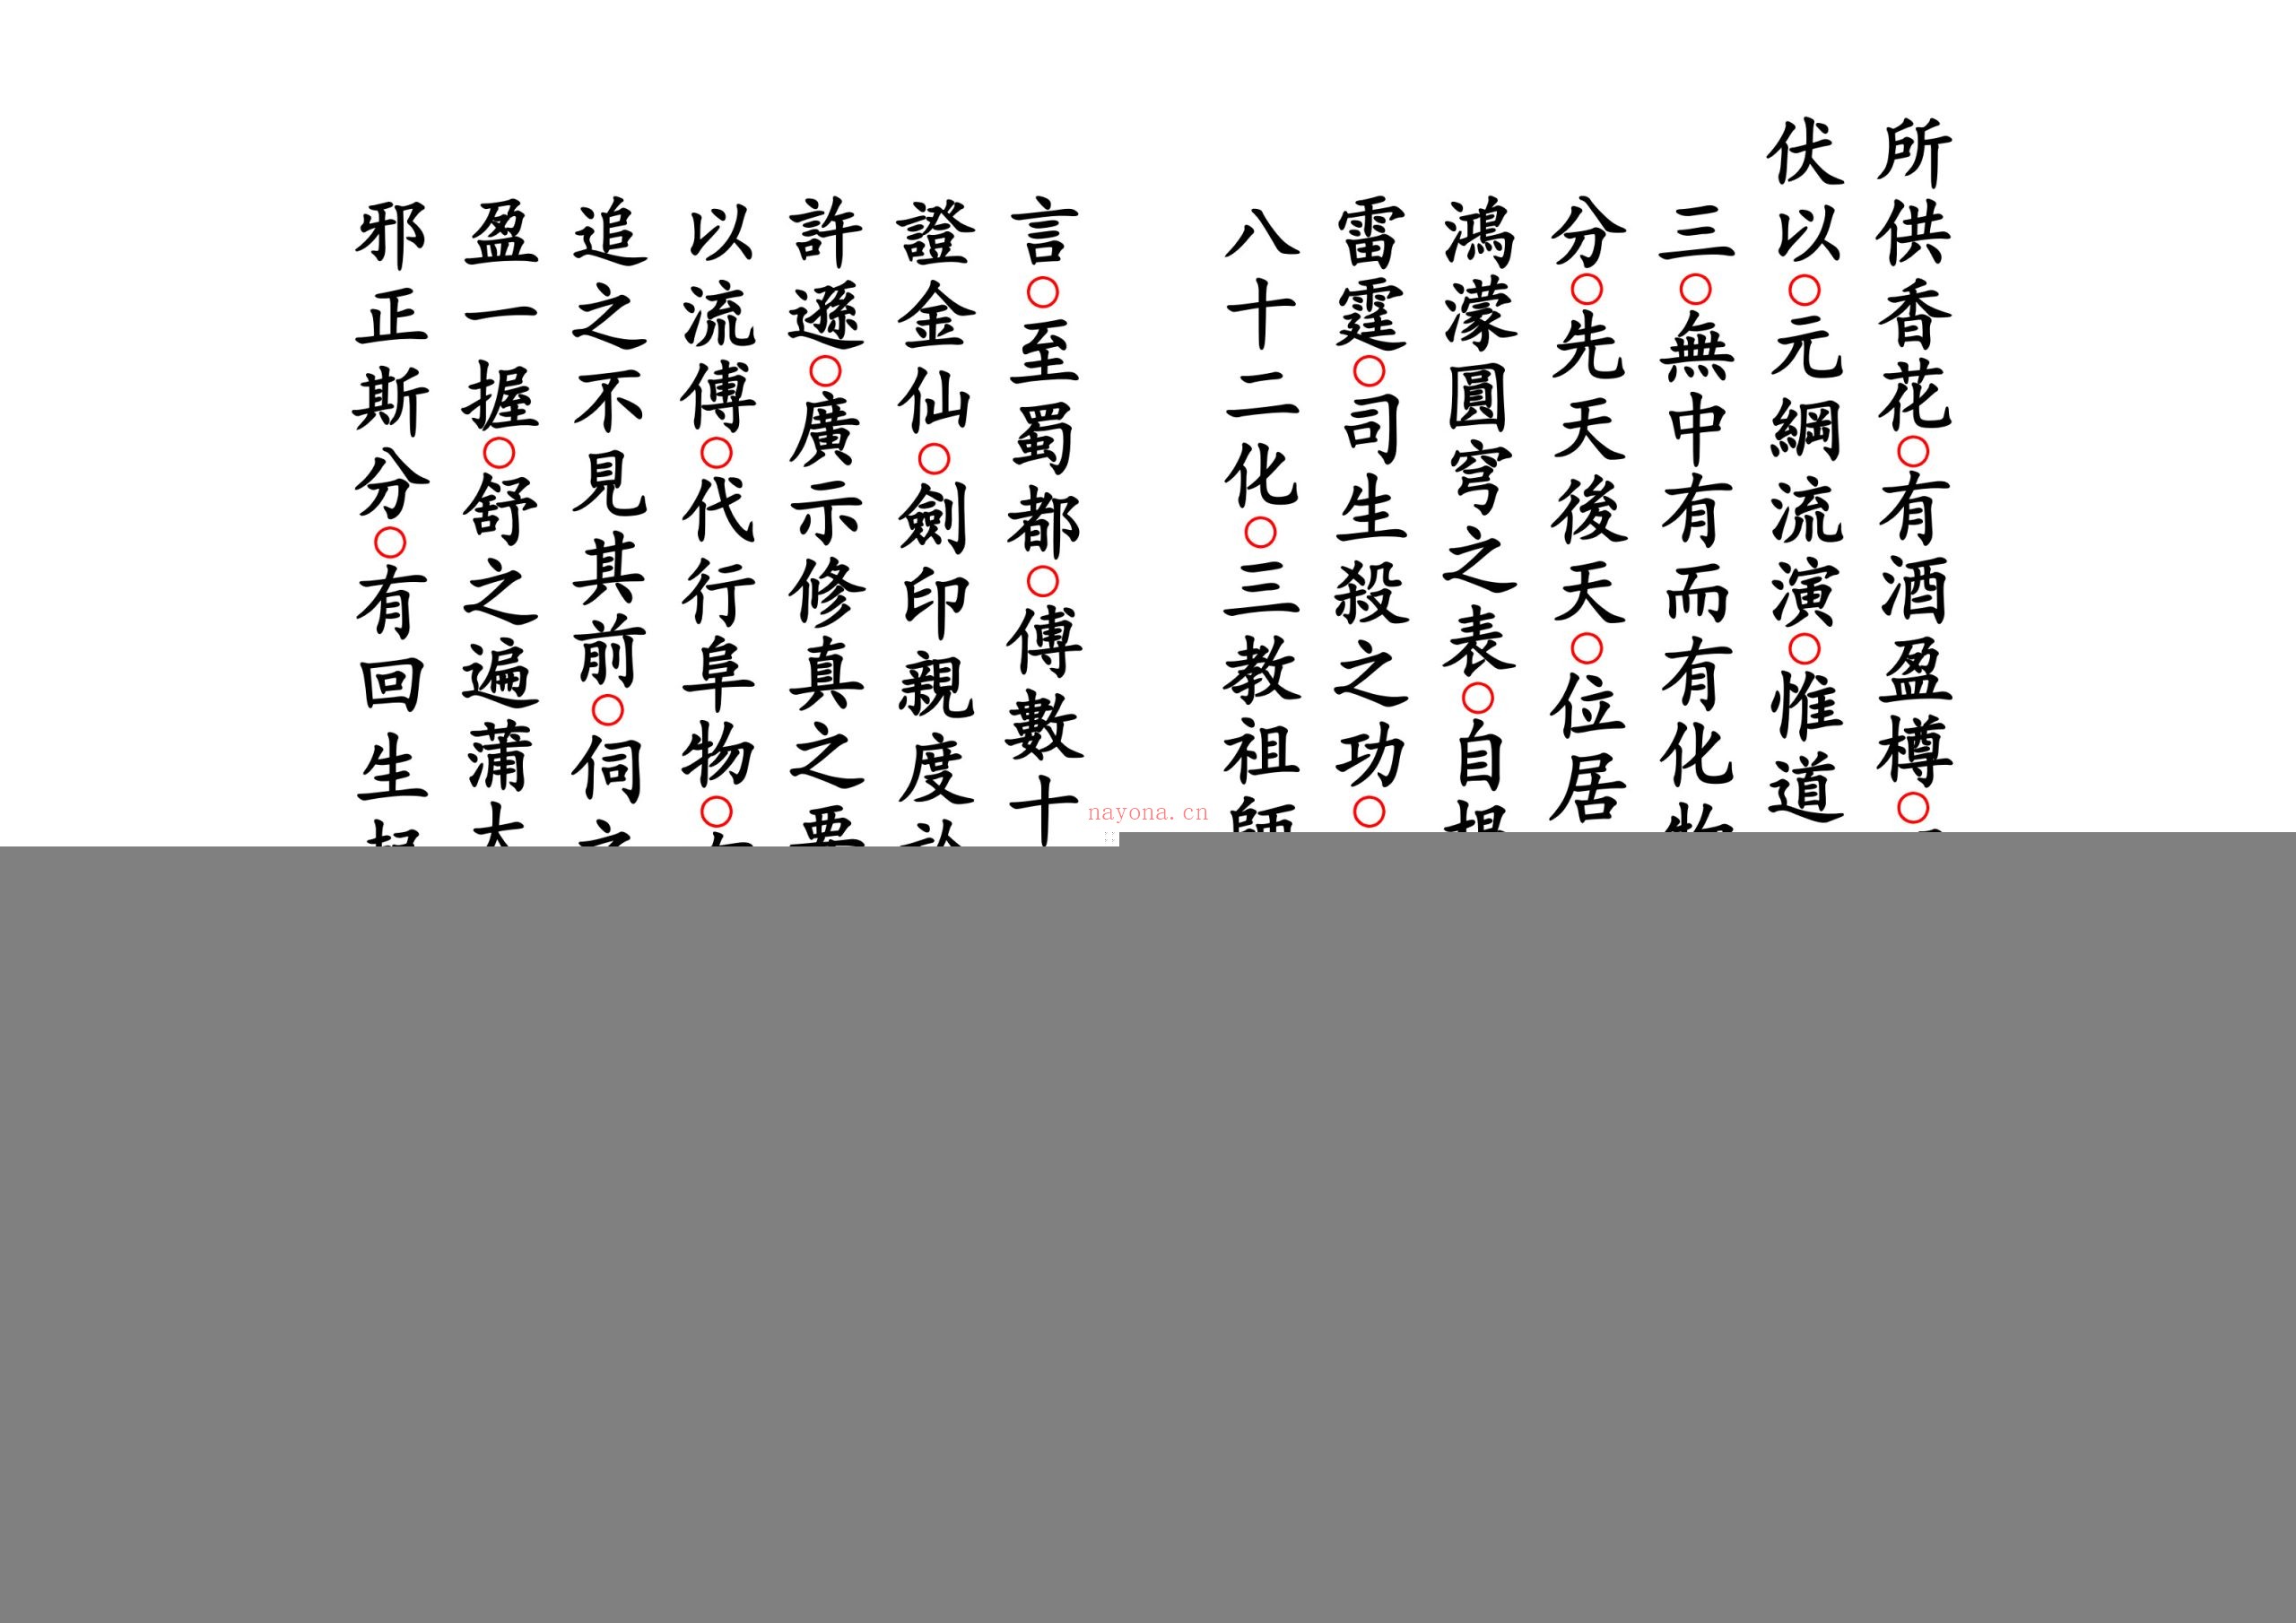 所供香花○有酒盈樽○
伏以○元綱流演○惟道
三○無中有而有化
分○先天後天○位居
鴻濛圓穹之表○目
雷霆○司生殺之功○
八十二化○三教祖
言○至都○傳數十
證金仙○劍印親度
許○廣示修真之
以流傳○代行阜物○
追之不見其前○伺
盈一握○舒之遍滿
邪正斯分○有回生
nayona.cn